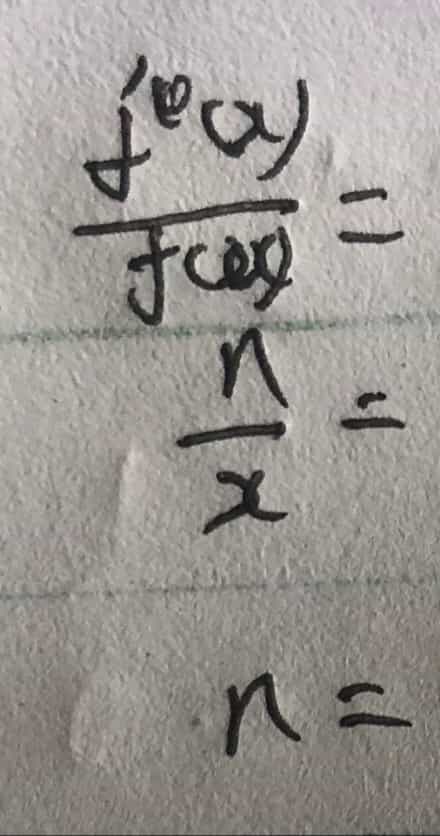 f'(x)/f(x) =
n/x =
n =